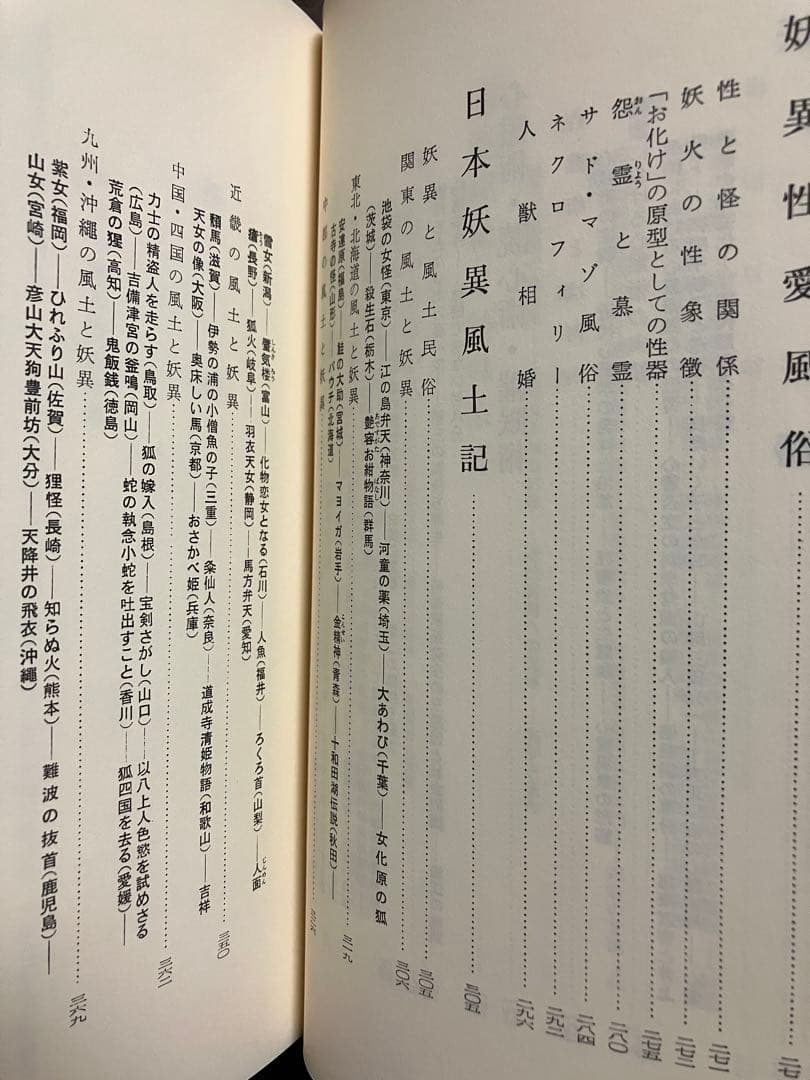 妖異性愛風俗……二七
性と怪の関係……二七一
妖火の性象徴……二七二
「お化け」の原型としての性器……二七五
怨霊と慕霊……二八〇
サド・マゾ風俗……二八四
ネクロフィリー……二九二
人獣相婚……二九六
日本妖異風土記……三〇五
妖異と風土民俗……三〇五
関東の風土と妖異……三〇六
池袋の女怪(東京)――江の島弁天(神奈川)――河童の薬(埼玉)――大あわび(千葉)――女化原の狐
(茨城)――殺生石(栃木)――艶容お紺物語(群馬)
東北・北海道の風土と妖異……三一九
安達原(福島)――鮭の大助(宮城)――マヨイガ(岩手)――金精神(青森)――十和田湖伝説(秋田)――
古寺の怪(山形)――パウチ(北海道)
中部の風土と妖異……
雪女(新潟)――蜃気楼(富山)――化物恋女となる(石川)――人魚(福井)――ろくろ首(山梨)――人面
瘡(長野)――狐火(岐阜)――羽衣天女(静岡)――馬方弁天(愛知)
近畿の風土と妖異……三五〇
頽馬(滋賀)――伊勢の浦の小僧魚の子(三重)――粂仙人(奈良)――道成寺清姫物語(和歌山)――吉祥
天女の像(大阪)――奥床しい馬(京都)――おさかべ姫(兵庫)
中国・四国の風土と妖異……三六二
力士の精盗人を走らす(鳥取)――狐の嫁入(島根)――宝剣さがし(山口)――以八上人色慾を試めさる
(広島)――吉備津宮の釜鳴(岡山)――蛇の執念小蛇を吐出すこと(香川)――狐四国を去る(愛媛)――
荒倉の猩(高知)――鬼飯銭(徳島)
九州・沖縄の風土と妖異……三六九
紫女(福岡)――ひれふり山(佐賀)――狸怪(長崎)――知らぬ火(熊本)――難波の抜首(鹿児島)――
山女(宮崎)――彦山大天狗豊前坊(大分)――天降井の飛衣(沖縄)